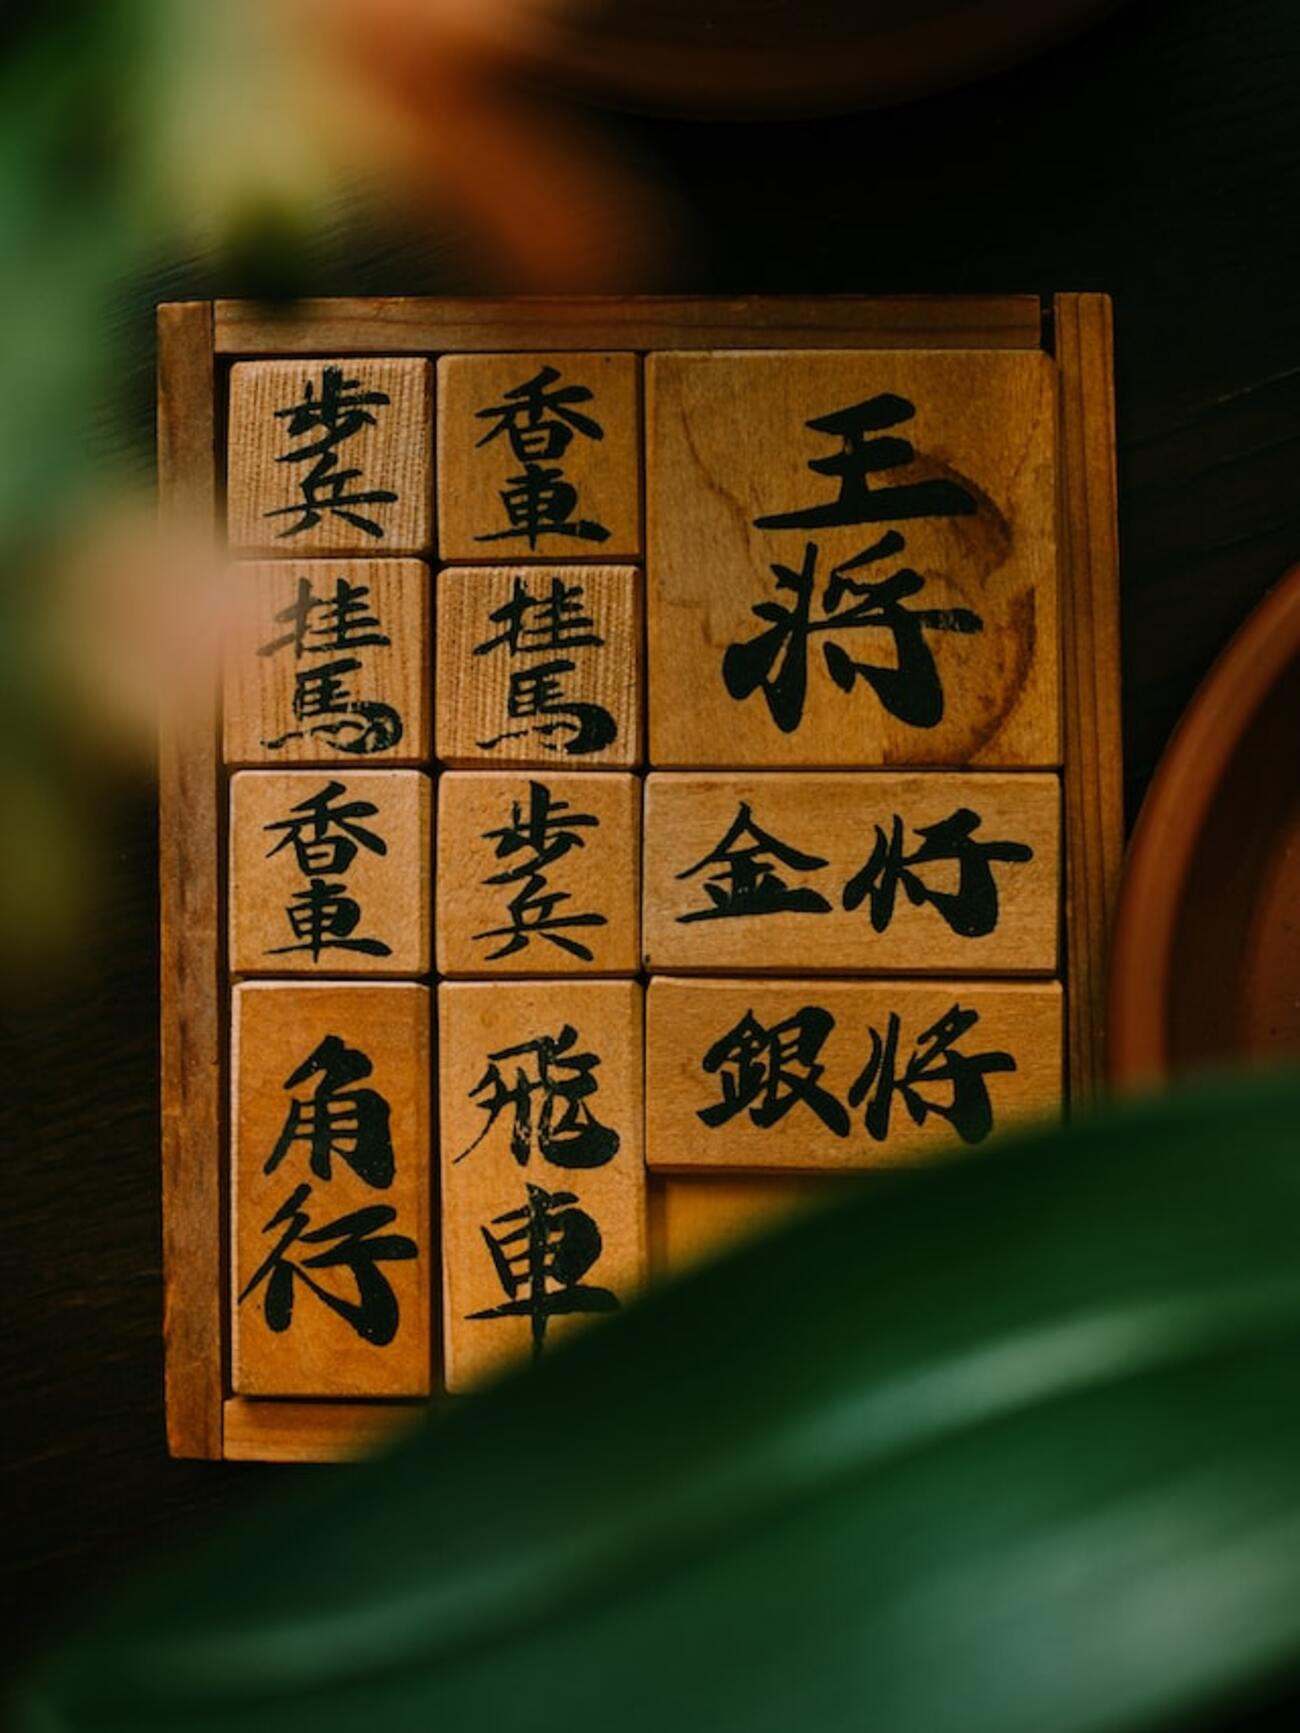 歩兵
香車
王将
挂馬
挂馬
香車
歩兵
金将
角行
飛車
銀将